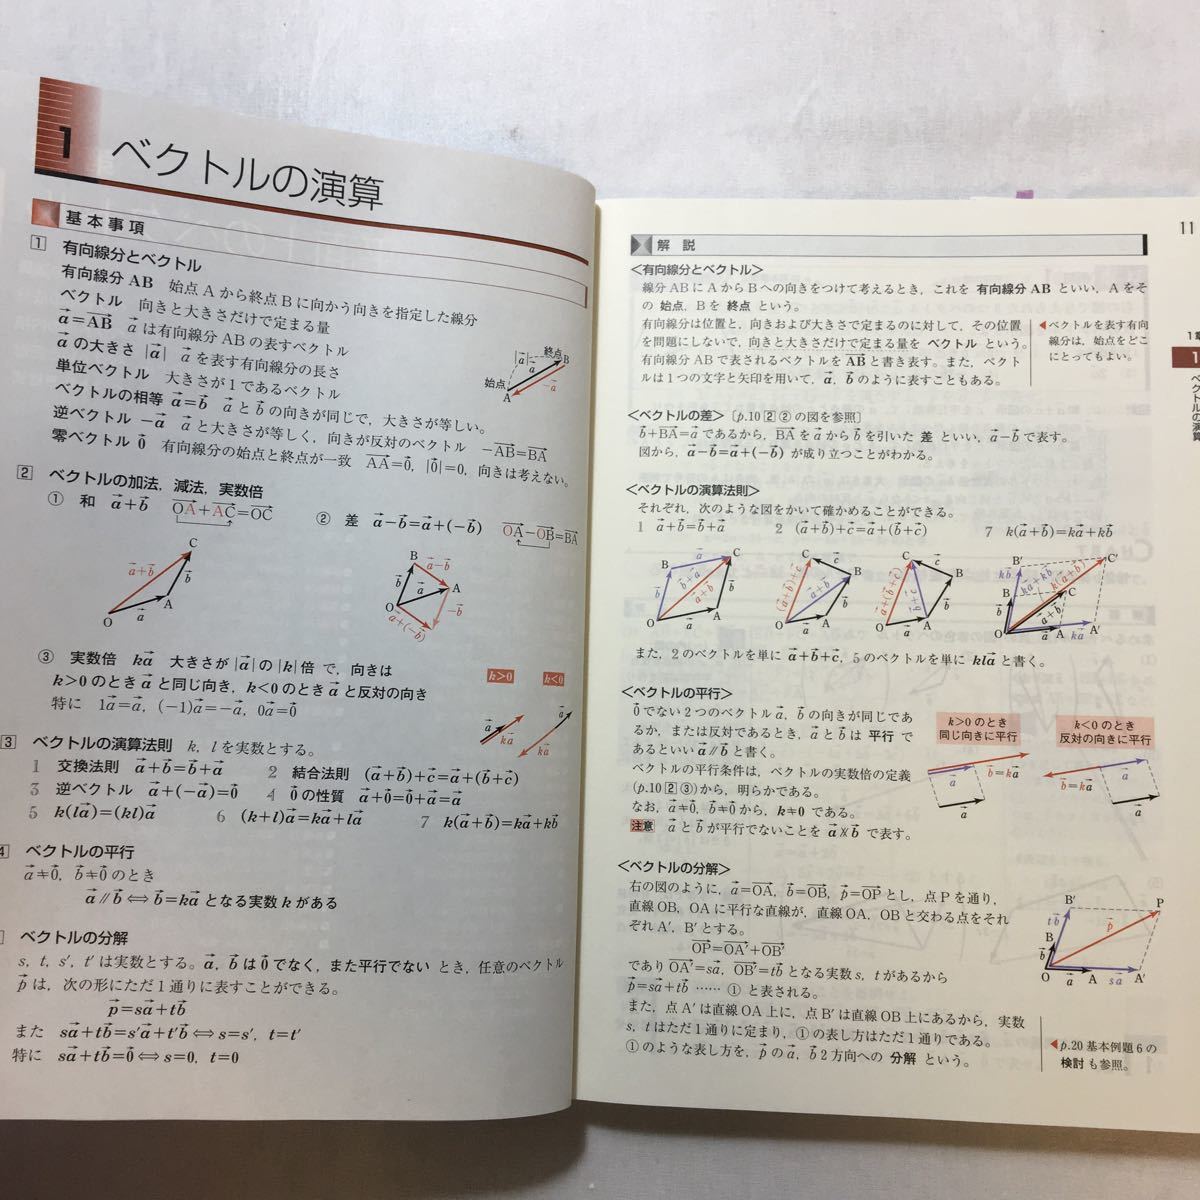 1 ベクトルの演算
基本事項
1 有向線分とベクトル
有向線分 AB 始点 A から終点 B に向かう向きを指定した線分
ベクトル 向きと大きさだけで定まる量
a⃗=AB⃗ a⃗ は有向線分 AB の表すベクトル
a⃗ の大きさ |a⃗| a⃗ を表す有向線分の長さ
単位ベクトル 大きさが 1 であるベクトル
ベクトルの相等 a⃗=b⃗ a⃗ と b⃗ の向きが同じで,大きさが等しい。
逆ベクトル −a⃗ a⃗ と大きさが等しく,向きが反対のベクトル −AB⃗=BA⃗
零ベクトル 0⃗ 有向線分の始点と終点が一致 AA⃗=0⃗,|0⃗|=0,向きは考えない。
終点 B
|a⃗| a⃗
−a⃗
始点
A
2 ベクトルの加法,減法,実数倍
① 和 a⃗+b⃗ OA⃗+AC⃗=OC⃗
② 差 a⃗−b⃗=a⃗+(−b⃗) OA⃗−OB⃗=BA⃗
C
a⃗+b⃗ b⃗
a⃗ A
O
B a⃗−b⃗
b⃗ a⃗ A
O −b⃗
a⃗+(−b⃗)
③ 実数倍 ka⃗ 大きさが |a⃗| の |k| 倍 で,向きは
k>0 のとき a⃗ と同じ向き,k<0 のとき a⃗ と反対の向き
特に 1a⃗=a⃗,(−1)a⃗=−a⃗,0a⃗=0⃗
k>0 k<0
a⃗ ka⃗ a⃗ ka⃗
3 ベクトルの演算法則 k,l を実数とする。
1 交換法則 a⃗+b⃗=b⃗+a⃗ 2 結合法則 (a⃗+b⃗)+c⃗=a⃗+(b⃗+c⃗)
3 逆ベクトル a⃗+(−a⃗)=0⃗ 4 0⃗ の性質 a⃗+0⃗=0⃗+a⃗=a⃗
5 k(la⃗)=(kl)a⃗ 6 (k+l)a⃗=ka⃗+la⃗ 7 k(a⃗+b⃗)=ka⃗+kb⃗
4 ベクトルの平行
a⃗≠0⃗,b⃗≠0⃗ のとき
a⃗∥b⃗ ⟺ b⃗=ka⃗ となる実数 k がある
ベクトルの分解
s,t,s′,t′ は実数とする。a⃗,b⃗ は 0⃗ でなく,また平行でない とき,任意のベクトル
p⃗ は,次の形にただ 1 通りに表すことができる。
p⃗=sa⃗+tb⃗
また sa⃗+tb⃗=s′a⃗+t′b⃗ ⟺ s=s′,t=t′
特に sa⃗+tb⃗=0⃗ ⟺ s=0,t=0
11
解 説
<有向線分とベクトル>
線分 AB に A から B への向きをつけて考えるとき,これを 有向線分 AB といい,A をそ
の 始点,B を 終点 という。
有向線分は位置と,向きおよび大きさで定まるのに対して,その位置
を問題にしないで,向きと大きさだけで定まる量を ベクトル という。
有向線分 AB で表されるベクトルを AB⃗ と書き表す。また,ベクト
ルは 1 つの文字と矢印を用いて,a⃗,b⃗ のように表すこともある。
◀ベクトルを表す有向
線分は,始点をどこ
にとってもよい。
1章
1
ベクトルの演算
<ベクトルの差> [p.10 2 ② の図を参照]
b⃗+BA⃗=a⃗ であるから,BA⃗ を a⃗ から b⃗ を引いた 差 といい,a⃗−b⃗ で表す。
図から,a⃗−b⃗=a⃗+(−b⃗) が成り立つことがわかる。
<ベクトルの演算法則>
それぞれ,次のような図をかいて確かめることができる。
1 a⃗+b⃗=b⃗+a⃗ 2 (a⃗+b⃗)+c⃗=a⃗+(b⃗+c⃗) 7 k(a⃗+b⃗)=ka⃗+kb⃗
B a⃗ C
b⃗ b⃗+a⃗ a⃗+b⃗ b⃗
O a⃗ A
C c⃗ B
(a⃗+b⃗)+c⃗ a⃗+b⃗ b⃗
O a⃗ A
C c⃗ B
a⃗+(b⃗+c⃗) b⃗+c⃗ b⃗
O a⃗ A
B′ C′
kb⃗ ka⃗+kb⃗ k(a⃗+b⃗)
B C
b⃗ a⃗+b⃗
O a⃗ A ka⃗ A′
また,2 のベクトルを単に a⃗+b⃗+c⃗,5 のベクトルを単に kla⃗ と書く。
<ベクトルの平行>
0⃗ でない 2 つのベクトル a⃗,b⃗ の向きが同じであ
るか,または反対であるとき,a⃗ と b⃗ は 平行 で
あるといい a⃗∥b⃗ と書く。
ベクトルの平行条件は,ベクトルの実数倍の定義
(p.10 2 ③)から,明らかである。
なお,a⃗≠0⃗,b⃗≠0⃗ から,k≠0 である。
注意 a⃗ と b⃗ が平行でないことを a⃗∦b⃗ で表す。
k>0 のとき
同じ向きに平行
k<0 のとき
反対の向きに平行
a⃗ b⃗=ka⃗
a⃗
a⃗
b⃗=ka⃗
a⃗
<ベクトルの分解>
右の図のように,a⃗=OA⃗,b⃗=OB⃗,p⃗=OP⃗ とし,点 P を通り,
直線 OB,OA に平行な直線が,直線 OA,OB と交わる点をそれ
ぞれ A′,B′ とする。
OP⃗=OA′⃗+OB′⃗
であり OA′⃗=sa⃗,OB′⃗=tb⃗ となる実数 s,t があるから
p⃗=sa⃗+tb⃗ …… ① と表される。
また,点 A′ は直線 OA 上に,点 B′ は直線 OB 上にあるから,実数
s,t はただ 1 通りに定まり,① の表し方はただ 1 通りである。
① のような表し方を,p⃗ の a⃗,b⃗ 2 方向への 分解 という。
B′ P
tb⃗ p⃗
B
b⃗
O a⃗ A sa⃗ A′
◀p.20 基本例題 6 の
検討 も参照。